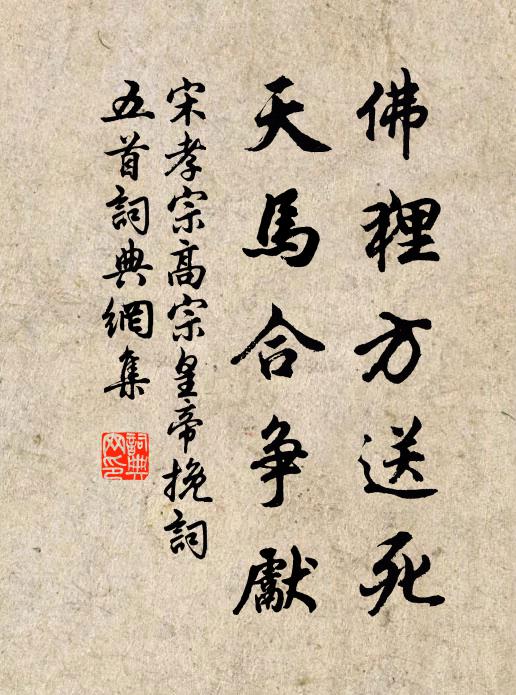 佛狸方送死
天馬合争獻
宋孝宗高宗皇帝挽詞
五首詞典網集
詞典网印